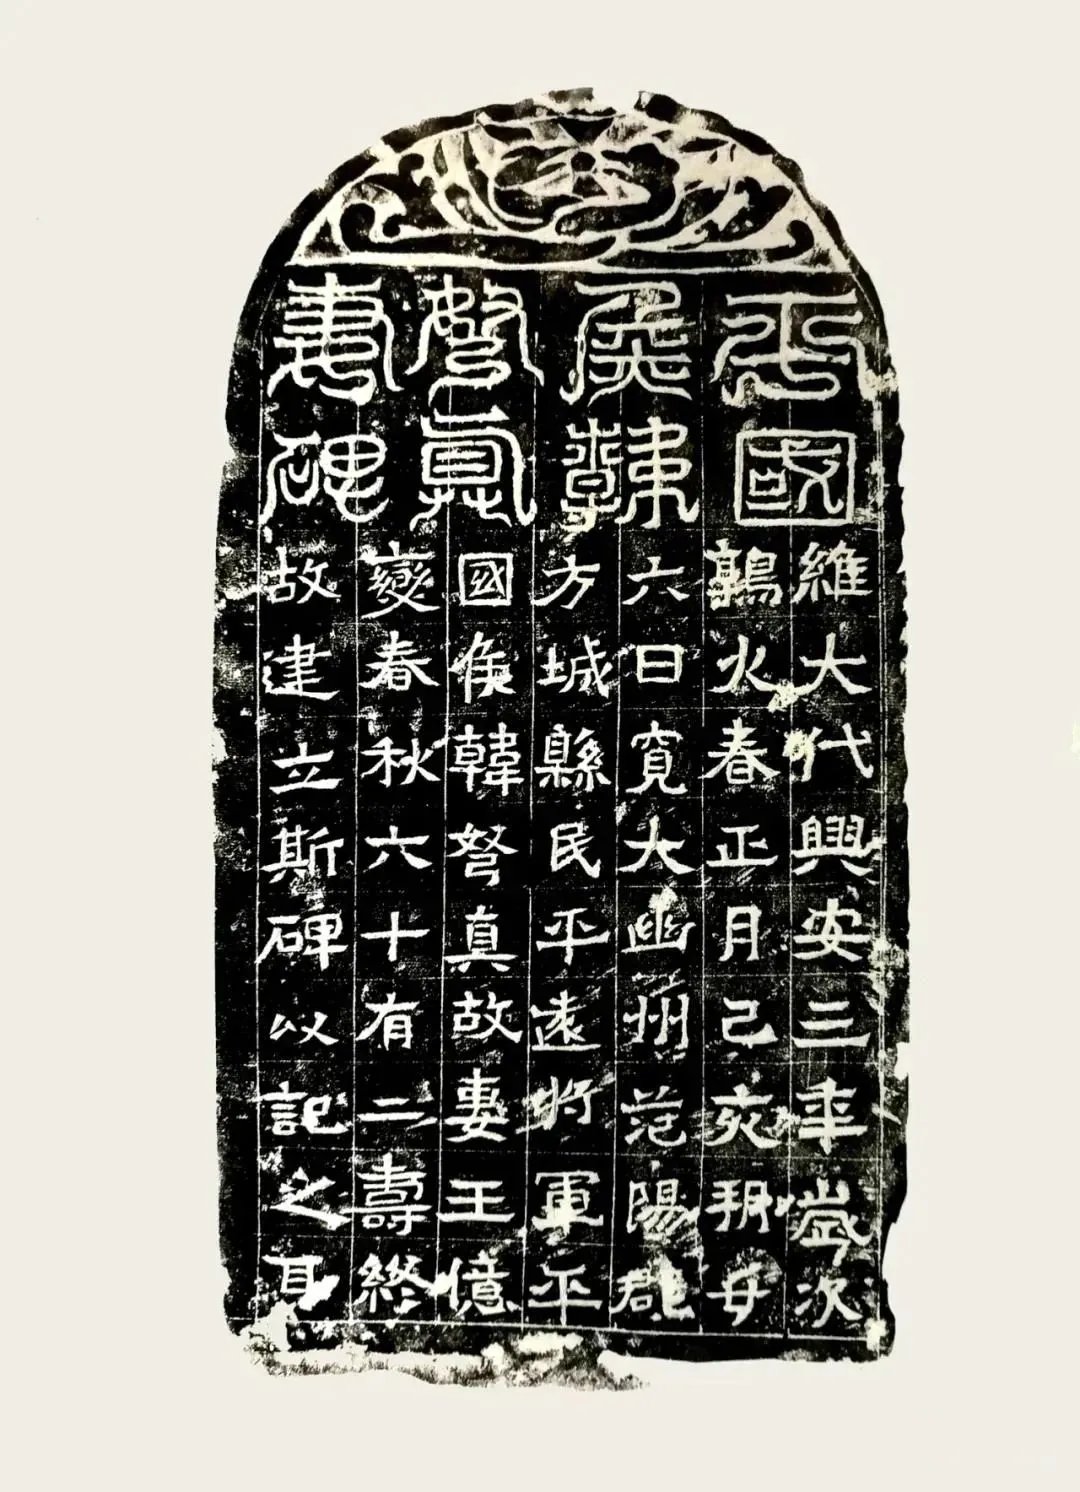 平國
侯韓
弩真
妻碑
維大代興安三年歲次
鶉火春正月己亥朔
六日寬大幽州范陽郡
方城縣民平遠將軍平
國侯韓弩真故妻王億
變春秋六十有二壽終
故建立斯碑以記之耳